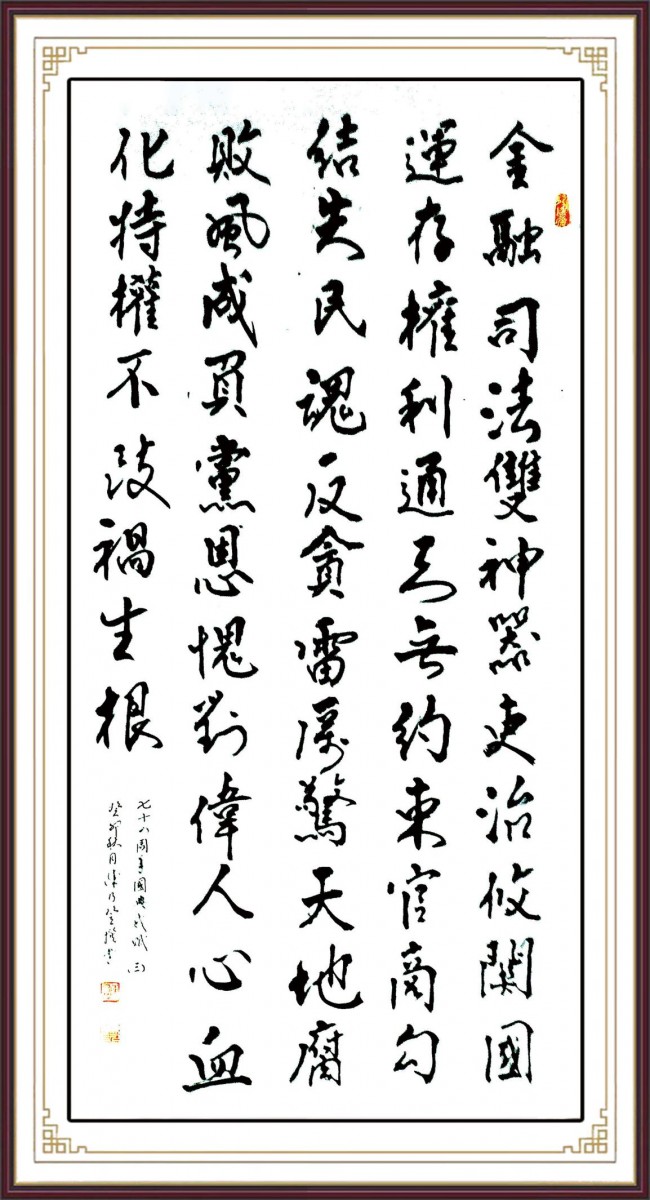 金融司法雙神器吏治攸關國
運存權利通無約束官商勾
結失民魂反貪雷厲驚天地腐
敗風成負黨恩愧對偉人心血
化特權不破禍生根
七十八周年國典感賦
癸卯秋月